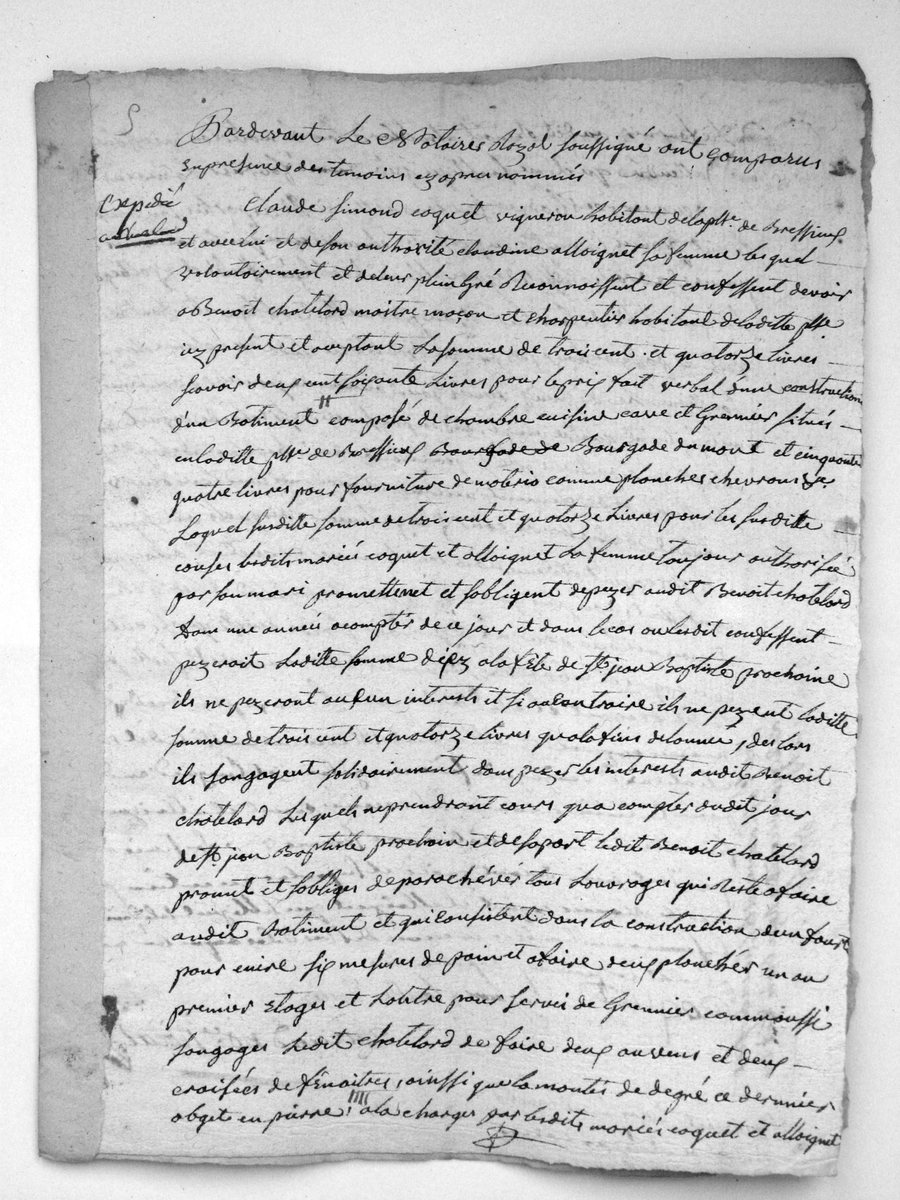 Pardevant Le Notaires Royal soussigné ont comparus
en presence des temoins cy apres nommés
Expedié
au chatelard
Claude Simond coquet vigneron habitant de la psse. de Bressieux
et avec lui et de son authorité claudine alloignet sa femme lesquel
volontairement et de leur plein Gré Reconnoissent et confessent devoir
a Benoit chatelard maitre maçon et charpentier habitant de laditte psse
icy present et aceptant La somme de trois cent et quatorze livres
scavoir deux cent soixante Livres pour le prix fait verbal d'une construction
d'un Batiment composé de chambre cuisine cave et Grennier situés
en laditte psse. de Bressieux Bourgade de Bourgade du mont et cinquante
quatre livres pour fourniture de materio comme planches chevrons &c.
Laquel susditte somme de trois cent et quatorze Livres pour les susditte
causes lesdits mariés coquet et alloignet La femme toujour authorisée
par son mari promettenet et s'obligent de pezer audit Benoit chatelard
dans une années a compter de ce jour et dans le cas ou lesdit confessent
pezerait Laditte somme d'icy a la fête de St. jean Baptiste prochaine
ils ne pezeront aucun interests et si au contraire ils ne pezent laditte
somme de trois cent et quatorze livres qu'a la fins de l'année, des lors
ils s'engagent solidairement dans pezer les interests audit Benoit
chatelard Lesquels ne prendront cours qu'a compter dudit jour
de St. jean Baptiste prochain et de sa part ledit Benoit chatelard
promet et s'obliges de parachever tous Louvrages qui Reste a faire
audit Batiment et qui consistent dans la construction d'un fourt
pour cuire six mesures de pain et a faire deux plancher un au
premier Etages et Lautre pour servir de Grennier comm'aussi
s'engages Ledit chatelard de faire deux auvens et deux
croisées de fénaitres, ainssi que la montés de degré ce dernier
objet en pierre, a la charges par lesdits mariés coquet et alloignet